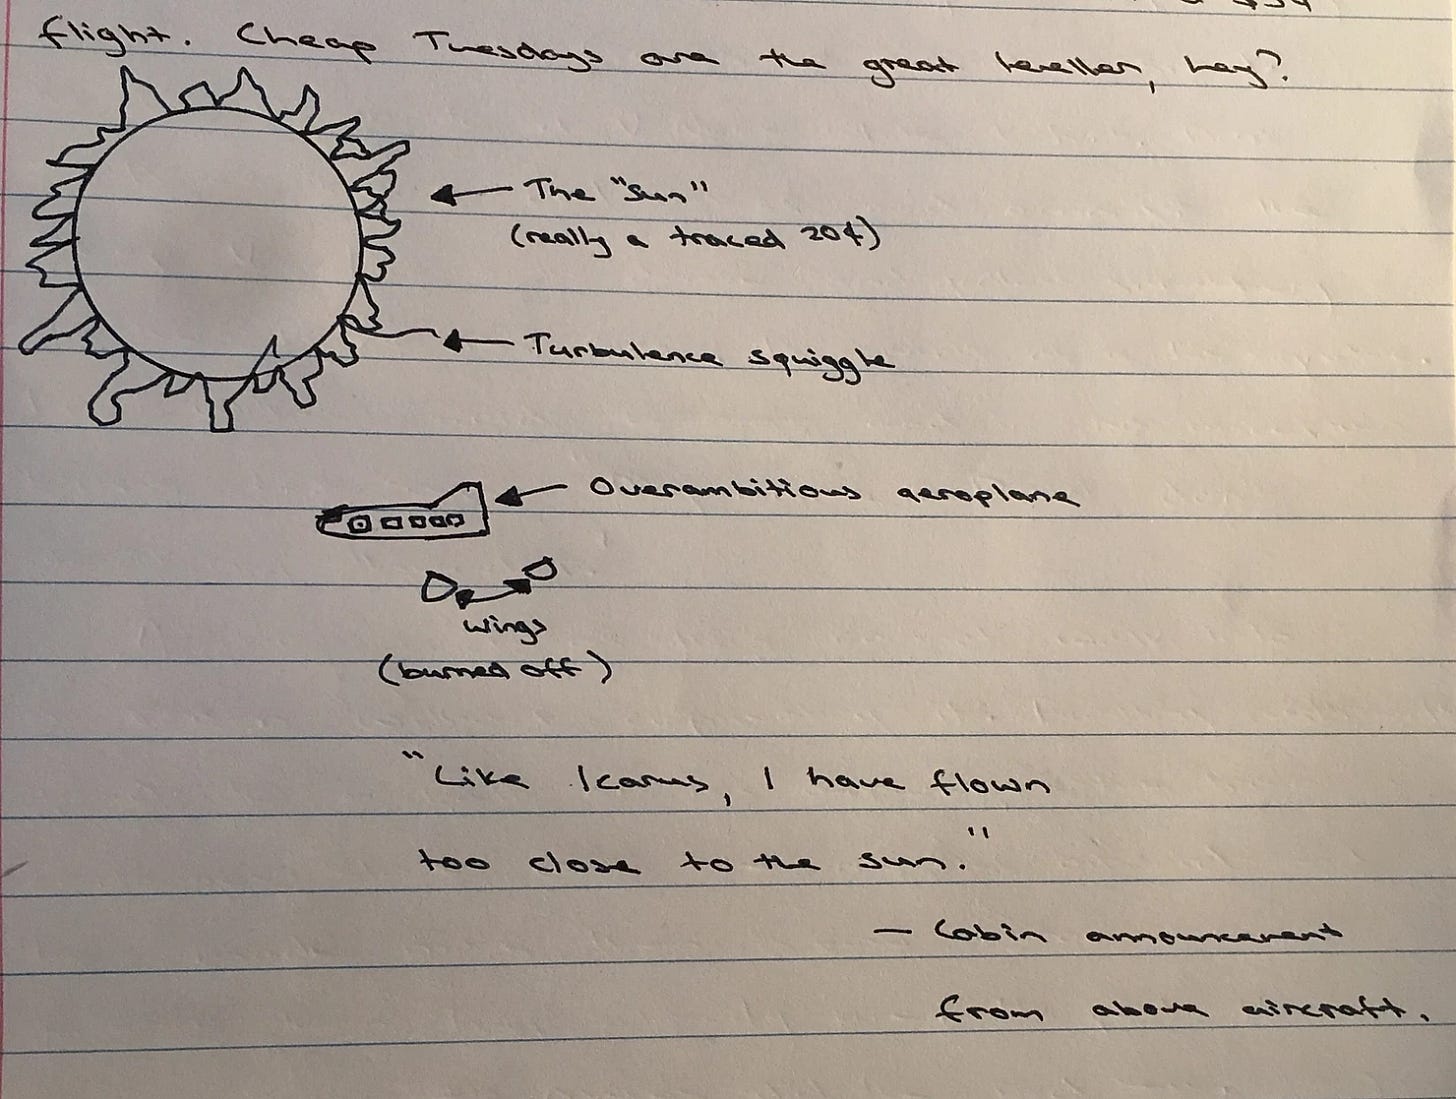 flight. Cheap Tuesdays are the great leveller, hey?
The "Sun"
(really a traced 20¢)
Turbulence squiggle
Overambitious aeroplane
wings
(burned off)
"Like Icarus, I have flown
too close to the sun."
— Cabin announcement
from above aircraft.